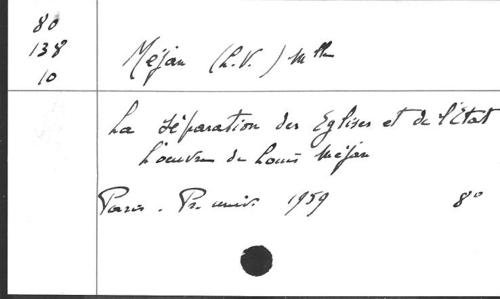 80
138
10
Méjan (L.V.) Mlle
La Séparation des Eglises et de l'Etat
L'oeuvre de Louis Méjan
Paris. Pr. univ. 1959 8°